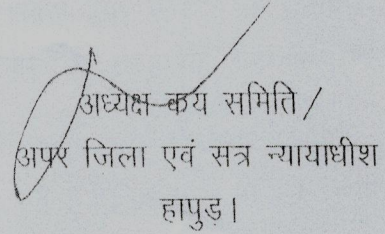 अध्यक्ष क्रय समिति /
अपर जिला एवं सत्र न्यायाधीश
हापुड़।